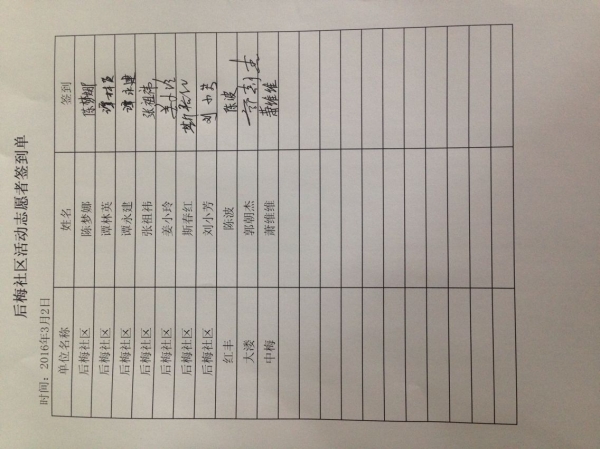 后梅社区活动志愿者签到单
时间：2016年3月2日
单位名称 姓名 签到
后梅社区 陈梦娜 陈梦娜
后梅社区 谭林英 谭林英
后梅社区 谭永建 谭永建
后梅社区 张祖祎 张祖祎
后梅社区 姜小玲 姜小玲
后梅社区 斯春红 斯春红
后梅社区 刘小芳 刘小芳
红丰 陈波 陈波
大溇 郭朝杰 郭朝杰
中梅 萧维维 萧维维